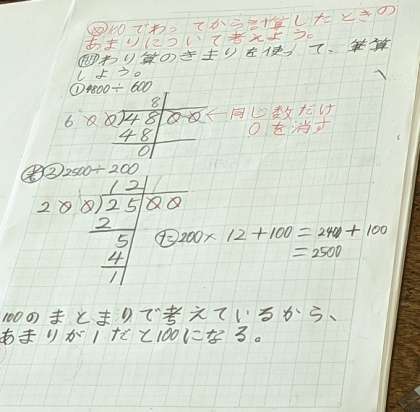 め 10でわってからで計算したときの
あまりについて考えよう。
問わり算のきまりを使って、筆算
しよう。
①4800÷600
8
600)4800 ←同じ数だけ
48 0を消す
0
②2500÷200
12
200)2500
2
5 た200×12+100=2400+100
4 =2500
1
100のまとまりで考えているから、
あまりが1だと100になる。